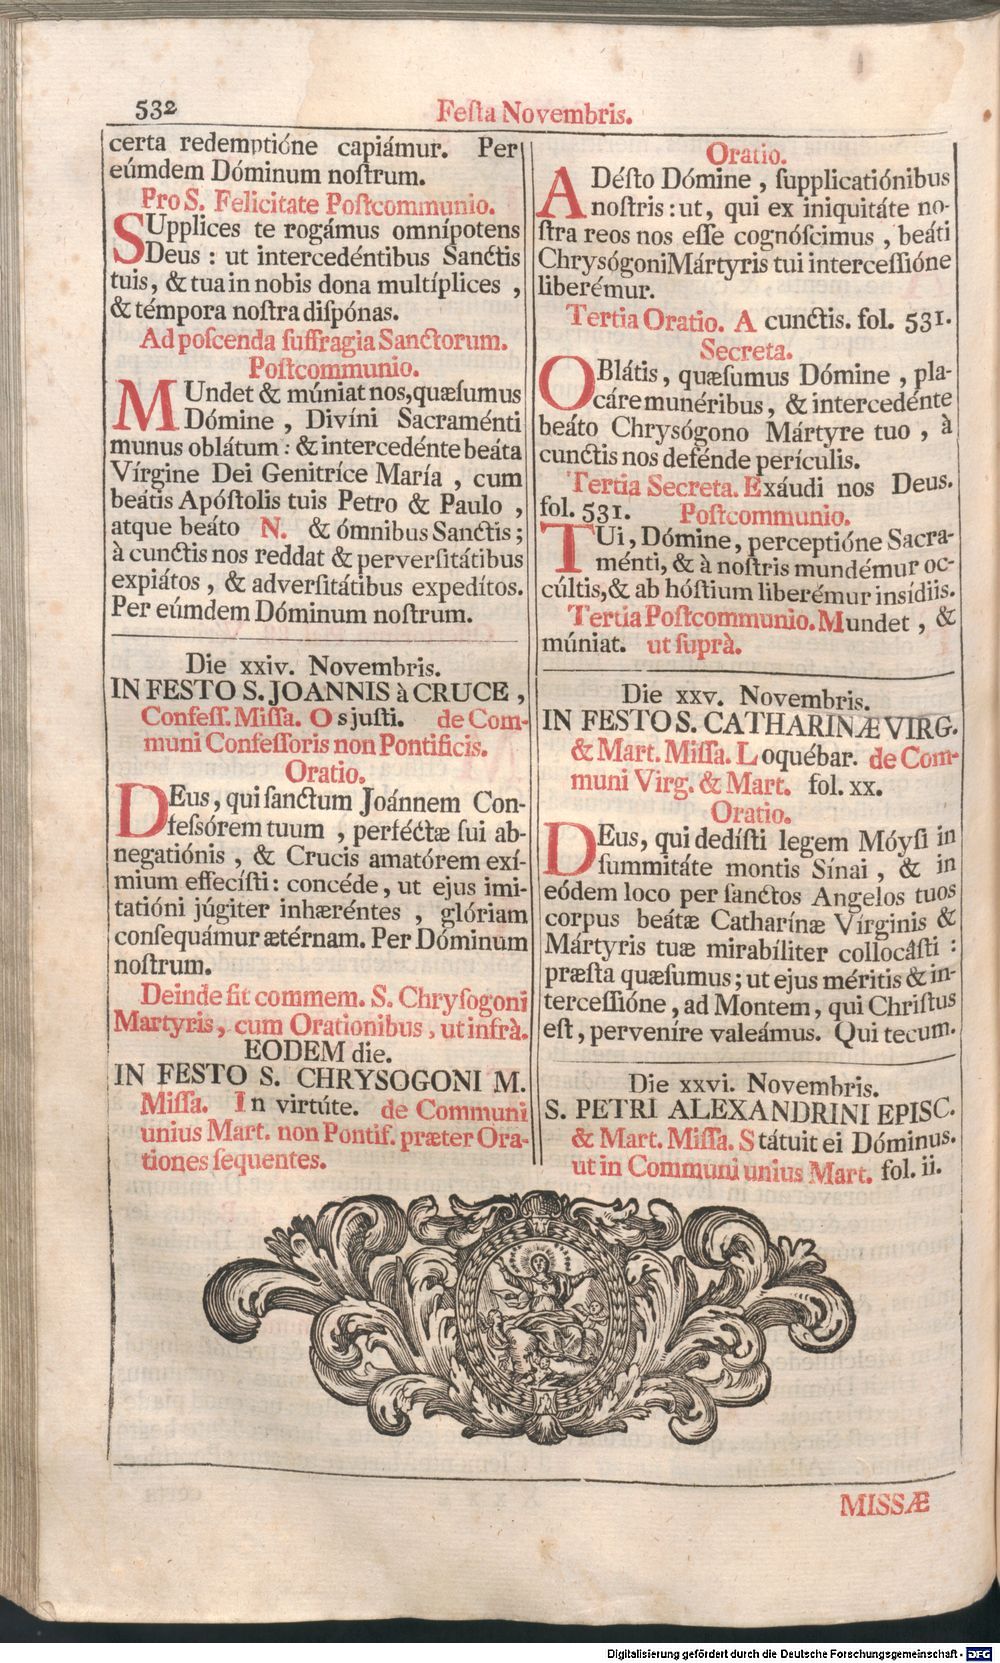 532
Feſta Novembris.
certa redemptióne capiámur. Per
eúmdem Dóminum noſtrum.
Pro S. Felicitate Poſtcommunio.
SUpplices te rogámus omnípotens
Deus : ut intercedéntibus Sanctis
tuis, & tua in nobis dona multíplices ,
& témpora noſtra diſpónas.
Ad poſcenda ſuffragia Sanctorum.
Poſtcommunio.
MUndet & múniat nos, quæſumus
Dómine , Divíni Sacraménti
munus oblátum : & intercedénte beáta
Vírgine Dei Genitríce María , cum
beátis Apóſtolis tuis Petro & Paulo ,
atque beáto N. & ómnibus Sanctis ;
à cunctis nos reddat & perverſitátibus
expiátos , & adverſitátibus expedítos.
Per eúmdem Dóminum noſtrum.
Die xxiv. Novembris.
IN FESTO S. JOANNIS à CRUCE ,
Confeſſ. Miſſa. Os juſti. de Com-
muni Confeſſoris non Pontificis.
Oratio.
DEus, qui ſanctum Joánnem Con-
feſſórem tuum , perféctæ ſui ab-
negatiónis , & Crucis amatórem exí-
mium effecíſti : concéde, ut ejus imi-
tatióni júgiter inhæréntes , glóriam
conſequámur ætérnam. Per Dóminum
noſtrum.
Deinde fit commem. S. Chryſogoni
Martyris, cum Orationibus, ut infrà.
EODEM die.
IN FESTO S. CHRYSOGONI M.
Miſſa. In virtúte. de Communi
unius Mart. non Pontif. præter Ora-
tiones ſequentes.
Oratio.
ADéſto Dómine , ſupplicatiónibus
noſtris : ut, qui ex iniquitáte no-
ſtra reos nos eſſe cognóſcimus , beáti
Chryſógoni Mártyris tui interceſſióne
liberémur.
Tertia Oratio. A cunctis. fol. 531.
Secreta.
OBlátis, quæſumus Dómine , pla-
cáre munéribus, & intercedénte
beáto Chryſógono Mártyre tuo , à
cunctis nos defénde perículis.
Tertia Secreta. Exáudi nos Deus.
fol. 531. Poſtcommunio.
TUi, Dómine, perceptióne Sacra-
ménti, & à noſtris mundémur oc-
cúltis, & ab hóſtium liberémur inſídiis.
Tertia Poſtcommunio. Mundet , &
múniat. ut ſuprà.
Die xxv. Novembris.
IN FESTO S. CATHARINÆ VIRG.
& Mart. Miſſa. Loquébar. de Com-
muni Virg. & Mart. fol. xx.
Oratio.
DEus, qui dedíſti legem Móyſi in
ſummitáte montis Sínai , & in
eódem loco per ſanctos Angelos tuos
corpus beátæ Catharínæ Vírginis &
Mártyris tuæ mirabíliter collocáſti :
præſta quæſumus ; ut ejus méritis & in-
terceſſióne , ad Montem , qui Chriſtus
eſt , perveníre valeámus. Qui tecum.
Die xxvi. Novembris.
S. PETRI ALEXANDRINI EPISC.
& Mart. Miſſa. Státuit ei Dóminus.
ut in Communi unius Mart. fol. ii.
MISSÆ
Digitalisierung gefördert durch die Deutsche Forschungsgemeinschaft - DFG